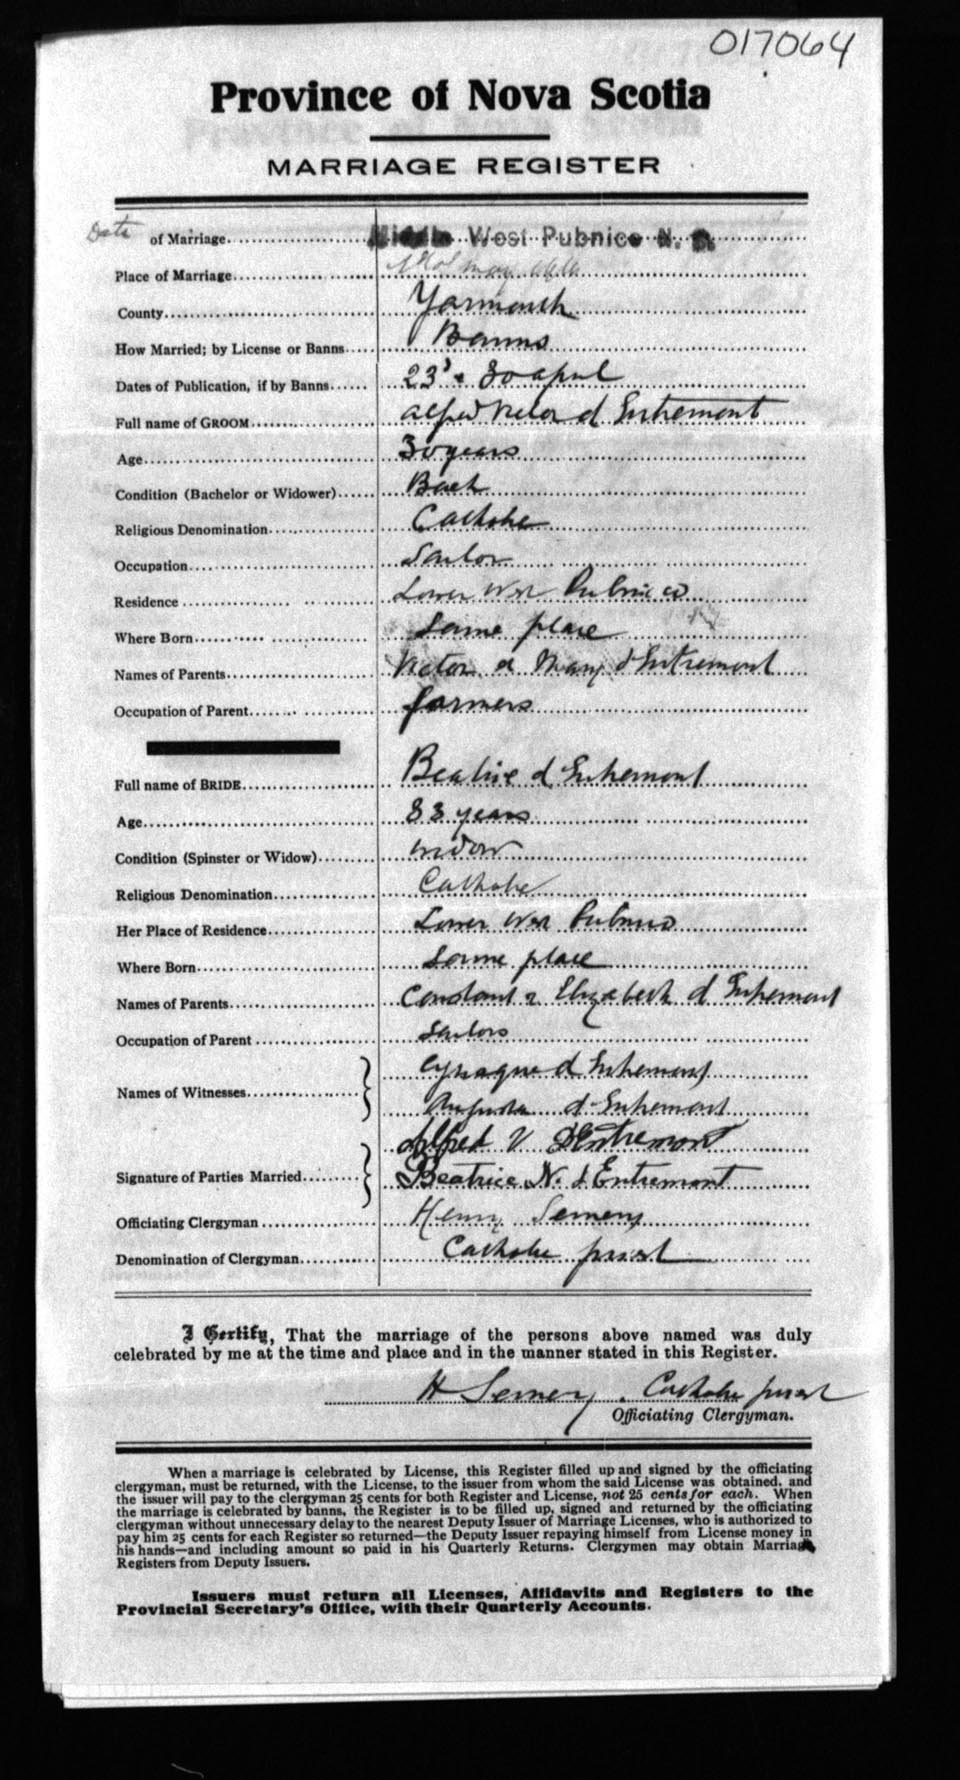 017064
Province of Nova Scotia
MARRIAGE REGISTER
Date of Marriage Middle West Pubnico N. S.
Place of Marriage may
County Yarmouth
How Married; by License or Banns Banns
Dates of Publication, if by Banns 23 & 30 april
Full name of GROOM alfred d Entremont
Age 30 years
Condition (Bachelor or Widower) Bach
Religious Denomination Catholic
Occupation Sailor
Residence Lower West Pubnico
Where Born Same place
Names of Parents Victor & Mary d'Entremont
Occupation of Parent farmers
Full name of BRIDE Beatrice d Entremont
Age 33 years
Condition (Spinster or Widow) widow
Religious Denomination Catholic
Her Place of Residence Lower West Pubnico
Where Born Same place
Names of Parents Constant & Elizabeth d Entremont
Occupation of Parent Sailors
Names of Witnesses d Entremont
d Entremont
Alfred V DEntremont
Signature of Parties Married Beatrice N. d Entremont
Officiating Clergyman Henry
Denomination of Clergyman Catholic priest
I Certify, That the marriage of the persons above named was duly
celebrated by me at the time and place and in the manner stated in this Register.
H Catholic priest
Officiating Clergyman.
When a marriage is celebrated by License, this Register filled up and signed by the officiating
clergyman, must be returned, with the License, to the issuer from whom the said License was obtained, and
the issuer will pay to the clergyman 25 cents for both Register and License, not 25 cents for each. When
the marriage is celebrated by banns, the Register is to be filled up, signed and returned by the officiating
clergyman without unnecessary delay to the nearest Deputy Issuer of Marriage Licenses, who is authorized to
pay him 25 cents for each Register so returned—the Deputy Issuer repaying himself from License money in
his hands—and including amount so paid in his Quarterly Returns. Clergymen may obtain Marriage
Registers from Deputy Issuers.
Issuers must return all Licenses, Affidavits and Registers to the
Provincial Secretary's Office, with their Quarterly Accounts.